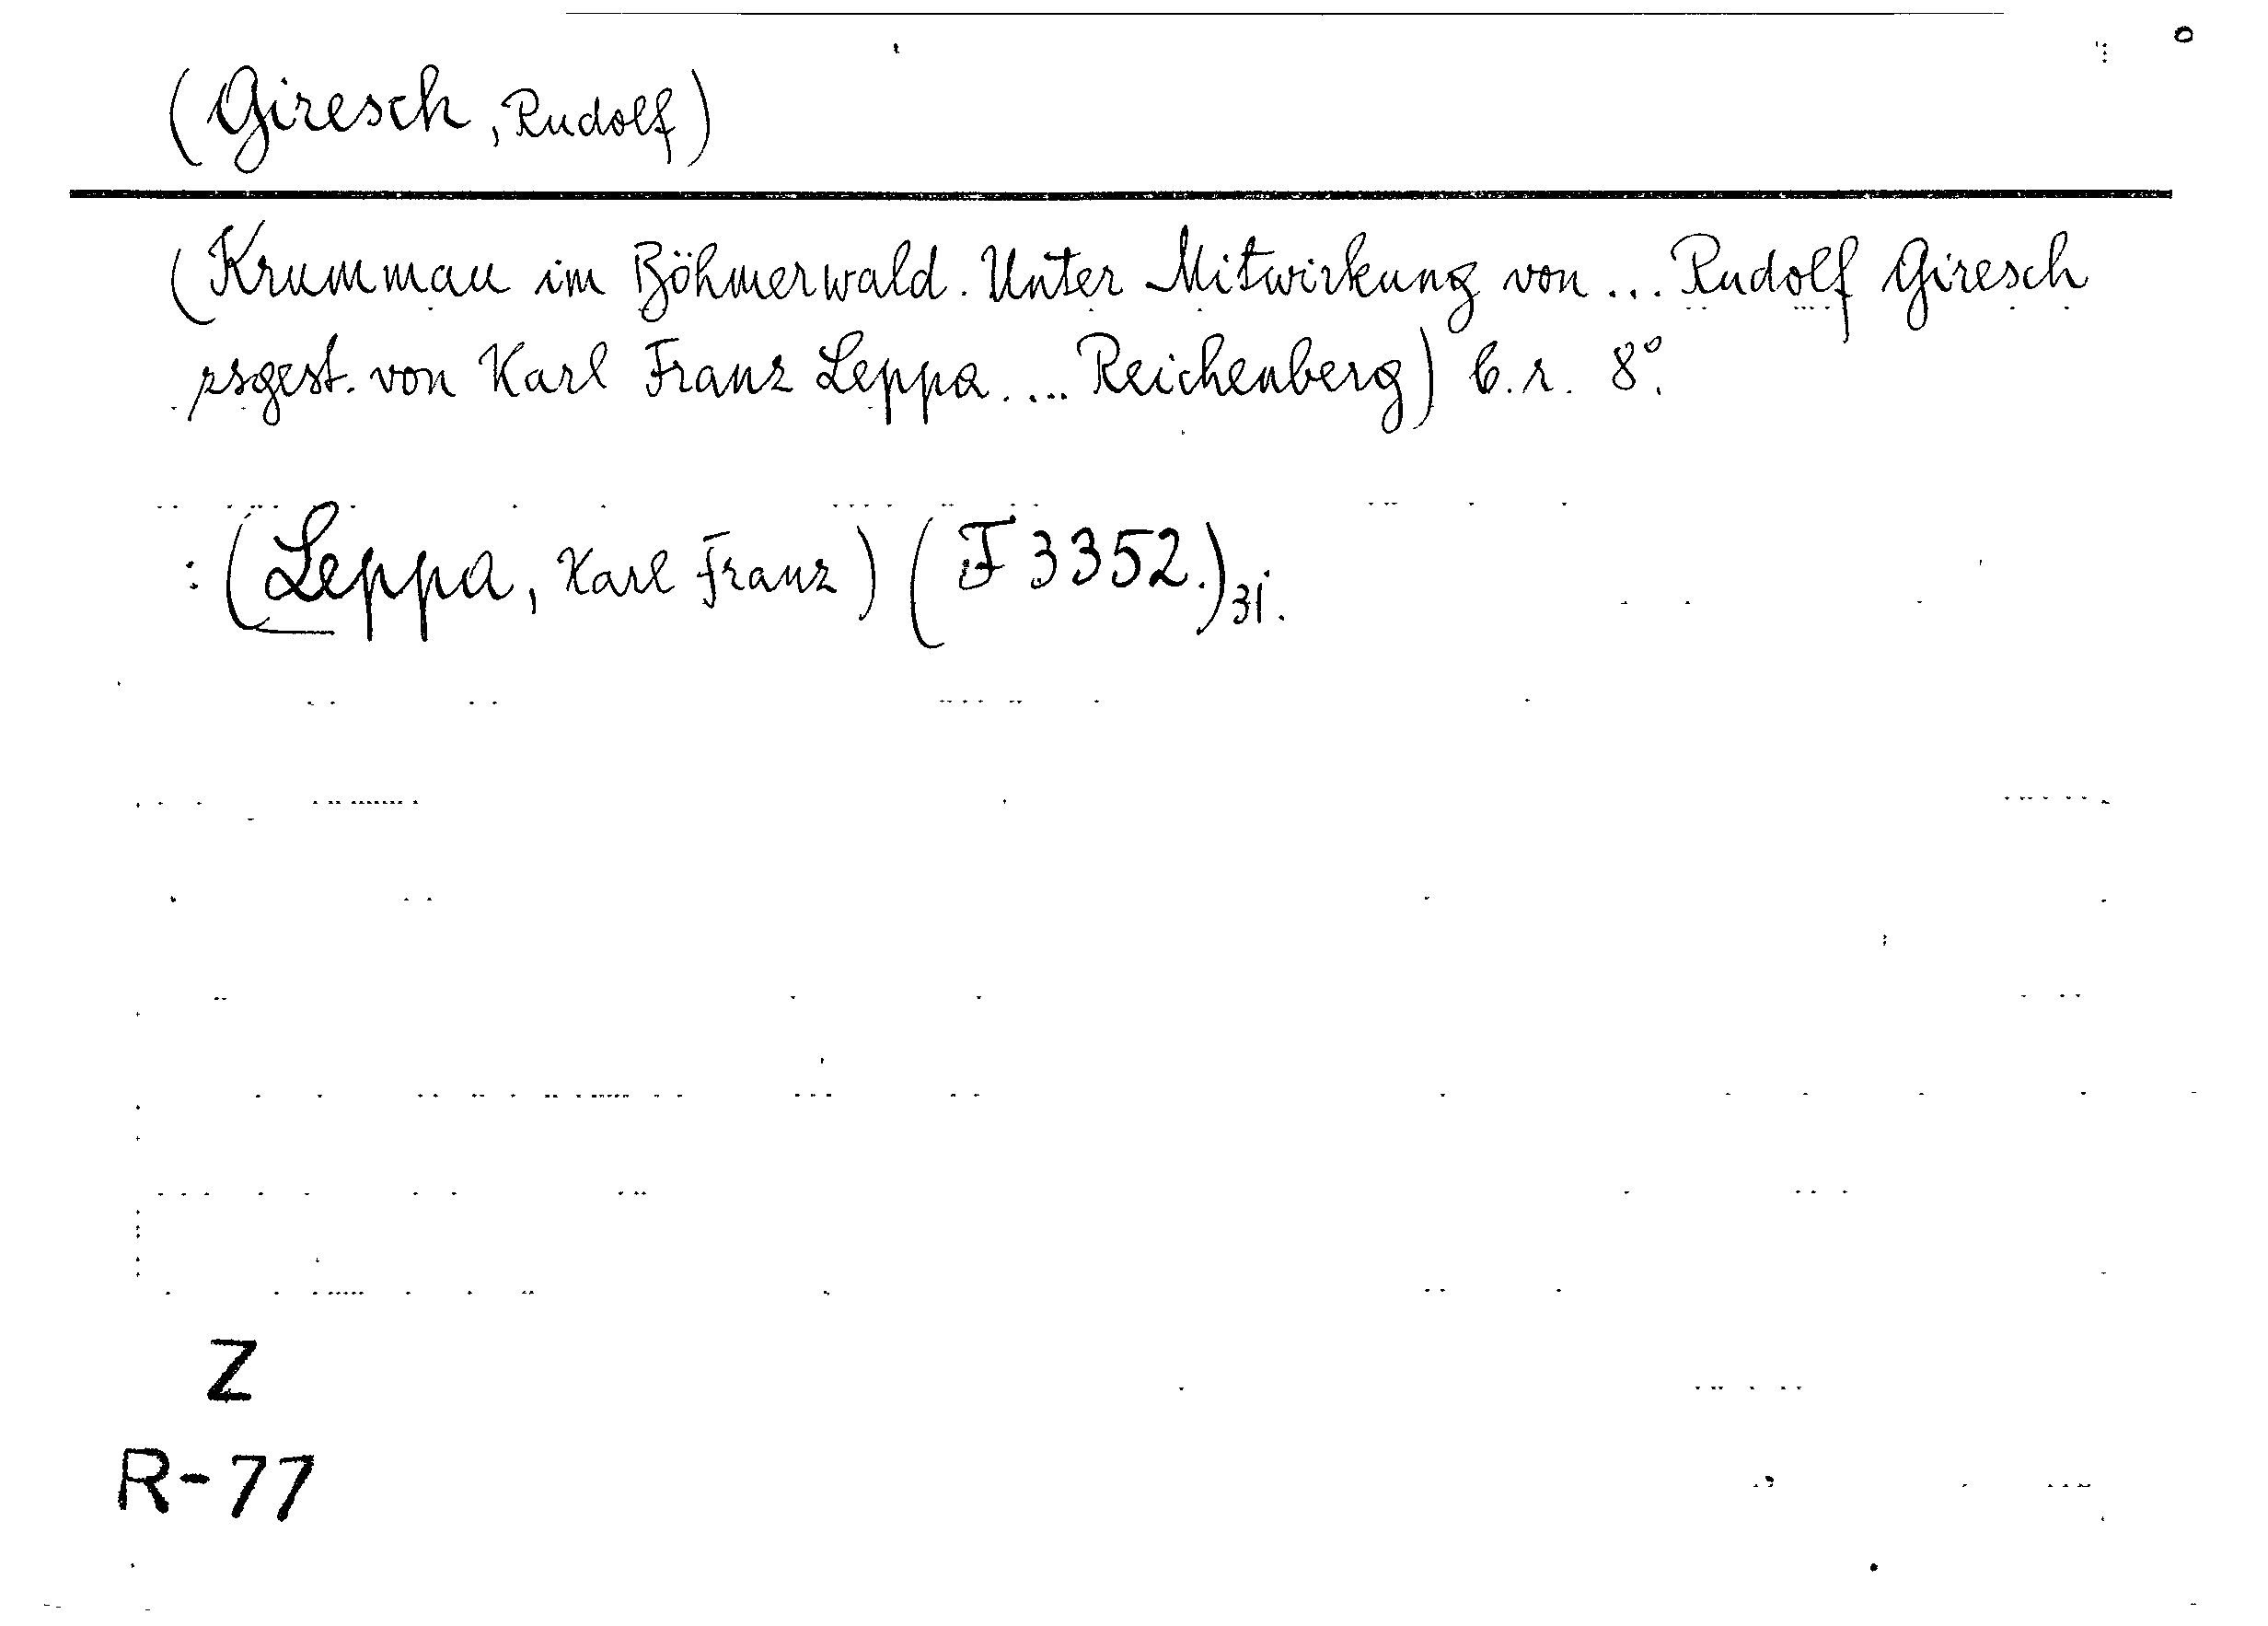 (Giresch, Rudolf)
(Krummau im Böhmerwald. Unter Mitwirkung von ... Rudolf Giresch
zsgest. von Karl Franz Leppa .... Reichenberg) b.r. 8°.
: (Leppa, Karl Franz) (F 3352.) 31.
Z
R-77